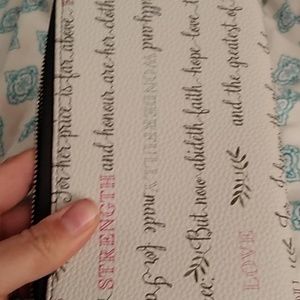 For her price is far above
STRENGTH and honour are her cloth
ully and WONDERFULLY made for I a
But now abideth faith hope love t
ee. and the greatest of
LOVE